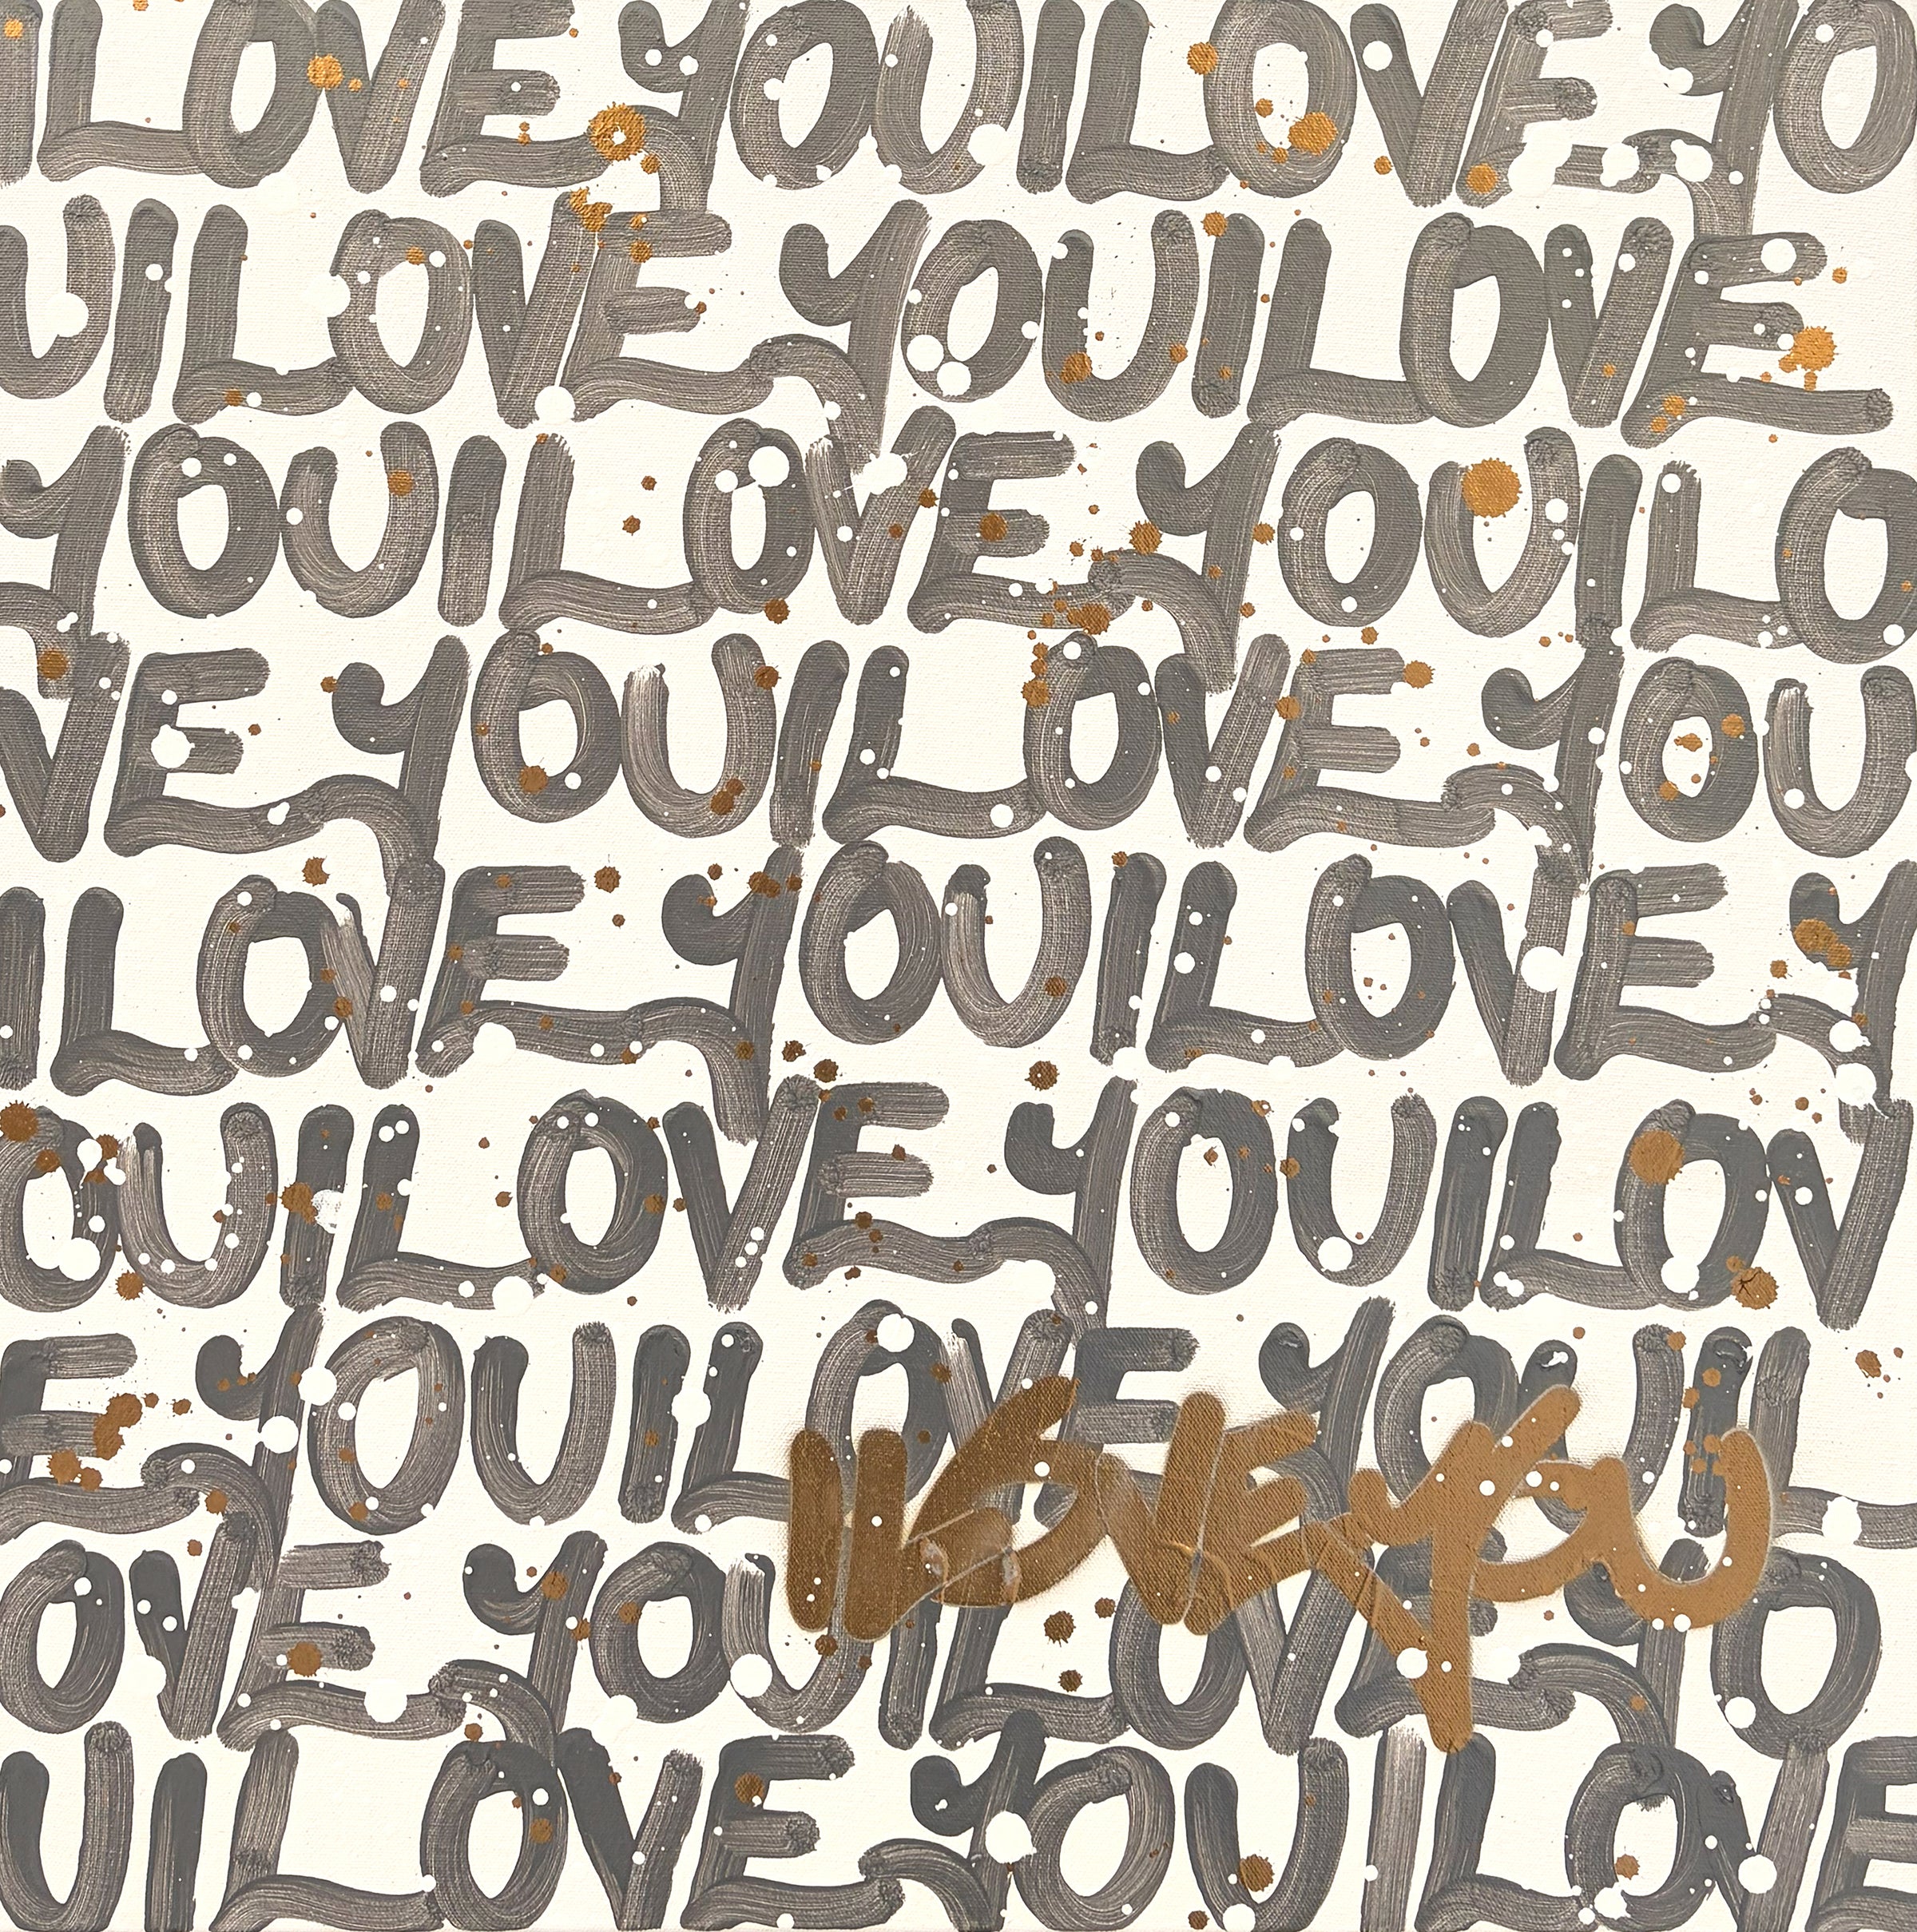 ILOVE YOUILOVE YO
UILOVE YOUILOVE
YOUILOVE YOUILO
VE YOUILOVE YOU
ILOVE YOUILOVE Y
OUILOVE YOUILOV
E YOUILOVE YOUIL
ILOVE YOU
OVE YOUILOVE YO
UILOVE YOUILOVE